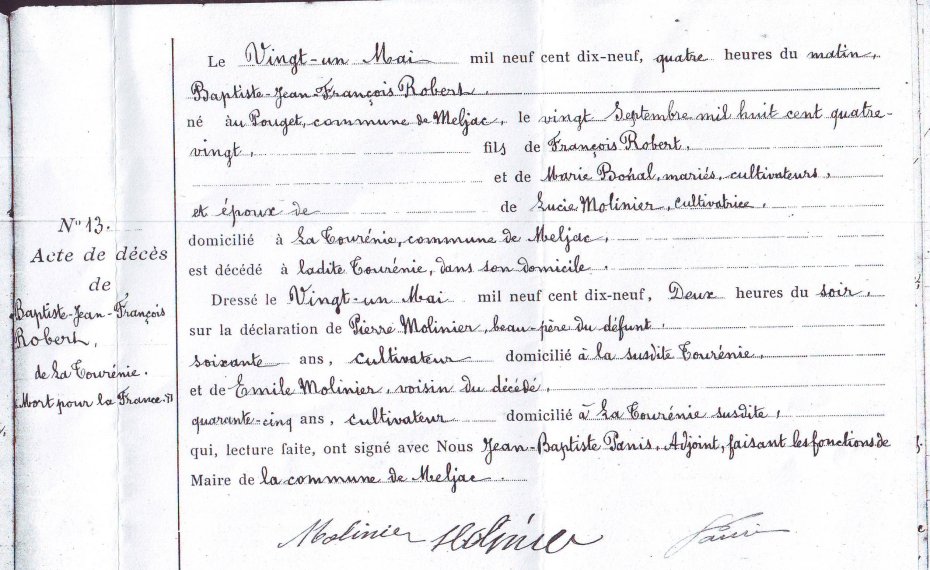 Le Vingt-un Mai mil neuf cent dix-neuf, quatre heures du matin,
Baptiste-Jean-François Robert,
né au Pouget, commune de Meljac, le vingt Septembre mil huit cent quatre-
vingt, fils de François Robert,
et de Marie Bonal, mariés, cultivateurs,
et époux de de Lucie Molinier, cultivatrice,
domicilié à La Tourénie, commune de Meljac,
est décédé à ladite Tourénie, dans son domicile.
Dressé le Vingt-un Mai mil neuf cent dix-neuf, Deux heures du soir,
sur la déclaration de Pierre Molinier, beau-père du défunt,
soixante ans, cultivateur domicilié à la susdite Tourénie,
et de Emile Molinier, voisin du décédé,
quarante-cinq ans, cultivateur domicilié à La Tourénie susdite,
qui, lecture faite, ont signé avec Nous Jean-Baptiste Panis, Adjoint, faisant les fonctions de
Maire de la commune de Meljac
Molinier Molinier Panis
N° 13.
Acte de décès
de
Baptiste-Jean-François
Robert,
de La Tourénie.
Mort pour la France